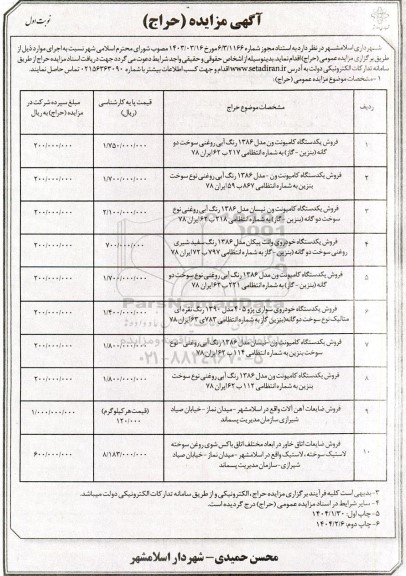 آگهی مزایده (حراج)
نوبت اول
شهرداری اسلامشهر در نظر دارد به استناد مجوز شماره ۶/۳/۱۱۶۶ مورخ ۱۴۰۳/۰۳/۱۶ مصوب شورای محترم اسلامی شهر نسبت به اجرای موارد ذیل از
طریق برگزاری مزایده عمومی (حراج) اقدام نماید. بدینوسیله از اشخاص حقوقی و حقیقی واجد شرایط دعوت می گردد جهت دریافت اسناد مزایده حراج از طریق
سامانه تدارکات الکترونیکی دولت به آدرس www.setadiran.ir اقدام و جهت کسب اطلاعات بیشتر با شماره ۰۲۱۵۶۳۶۳۰۹۰ تماس حاصل نمایند.
۱- مشخصات موضوع مزایده عمومی (حراج):
ردیف
مشخصات موضوع حراج
قیمت پایه کارشناسی (ریال)
مبلغ سپرده شرکت در مزایده (حراج) به ریال
۱
فروش یکدستگاه کامیونت ون مدل ۱۳۸۶ رنگ آبی روغنی سوخت دو
گانه (بنزین - گاز) به شماره انتظامی ۲۱۷ ب ۶۲ ایران ۷۸
۱/۷۵۰/۰۰۰/۰۰۰
۲۰۰/۰۰۰/۰۰۰
۲
فروش یکدستگاه کامیونت ون - مدل ۱۳۸۶ رنگ آبی روغنی نوع سوخت
بنزین به شماره انتظامی ۸۶۷ ب ۵۹ ایران ۷۸
۱/۷۰۰/۰۰۰/۰۰۰
۲۰۰/۰۰۰/۰۰۰
۳
فروش یکدستگاه کامیونت ون نیسان مدل ۱۳۸۶ رنگ آبی روغنی نوع
سوخت دو گانه (بنزین - گاز) به شماره انتظامی ۲۱۸ ب ۶۲ ایران ۷۸
۲/۱۰۰/۰۰۰/۰۰۰
۳۰۰/۰۰۰/۰۰۰
۴
فروش یکدستگاه خودروی وانت پیکان مدل ۱۳۸۶ رنگ سفید شیری
روغنی سوخت دو گانه (بنزین - گاز) به شماره انتظامی ۷۹۷ ب ۷۲ ایران ۷۸
۷۰۰/۰۰۰/۰۰۰
۲۰۰/۰۰۰/۰۰۰
۵
فروش یکدستگاه کامیونت ون مدل ۱۳۸۶ رنگ آبی روغنی نوع سوخت دو
گانه (بنزین - گاز) به شماره انتظامی ۲۲۱ ب ۶۲ ایران ۷۸
۱/۷۰۰/۰۰۰/۰۰۰
۲۰۰/۰۰۰/۰۰۰
۶
فروش یکدستگاه خودروی سواری پژو ۴۰۵ مدل ۱۳۹۰ رنگ نقره ای
متالیک نوع سوخت دوگانه (بنزین گاز) به شماره انتظامی ۷۸۳ ی ۶۳ ایران ۷۸
۱/۴۰۰/۰۰۰/۰۰۰
۲۰۰/۰۰۰/۰۰۰
۷
فروش یکدستگاه کامیونت ون - نیسان مدل ۱۳۸۶ رنگ آبی روغنی - نوع
سوخت بنزین به شماره انتظامی ۱۱۴ ب ۶۲ ایران ۷۸
۱/۸۰۰/۰۰۰/۰۰۰
۲۰۰/۰۰۰/۰۰۰
۸
فروش یکدستگاه کامیونت ون مدل ۱۳۸۶ رنگ آبی روغنی نوع سوخت
بنزین به شماره انتظامی ۱۱۲ ب ۶۲ ایران ۷۸
۱/۸۰۰/۰۰۰/۰۰۰
۲۰۰/۰۰۰/۰۰۰
۹
فروش ضایعات آهن آلات واقع در اسلامشهر - میدان نماز - خیابان صیاد
شیرازی سازمان مدیریت پسماند
(قیمت هر کیلوگرم) ۱۲۰/۰۰۰
۱/۰۰۰/۰۰۰/۰۰۰
۱۰
فروش ضایعات اتاق خاور در ابعاد مختلف اتاق باکس شوی روغن سوخته
لاستیک سوخته، لاستیک واقع در اسلامشهر - میدان نماز - خیابان صیاد
شیرازی - سازمان مدیریت پسماند
۸/۱۸۳/۰۰۰/۰۰۰
۶۰۰/۰۰۰/۰۰۰
۳- بدیهی است کلیه فرآیند برگزاری مزایده حراج، الکترونیکی و از طریق سامانه تدارکات الکترونیکی دولت میباشد.
۴- سایر شرایط در اسناد مزایده عمومی (حراج) درج گردیده است.
۵- چاپ اول: ۱۴۰۴/۱/۳۰
۶- چاپ دوم: ۱۴۰۴/۲/۶
محسن حمیدی - شهردار اسلامشهر